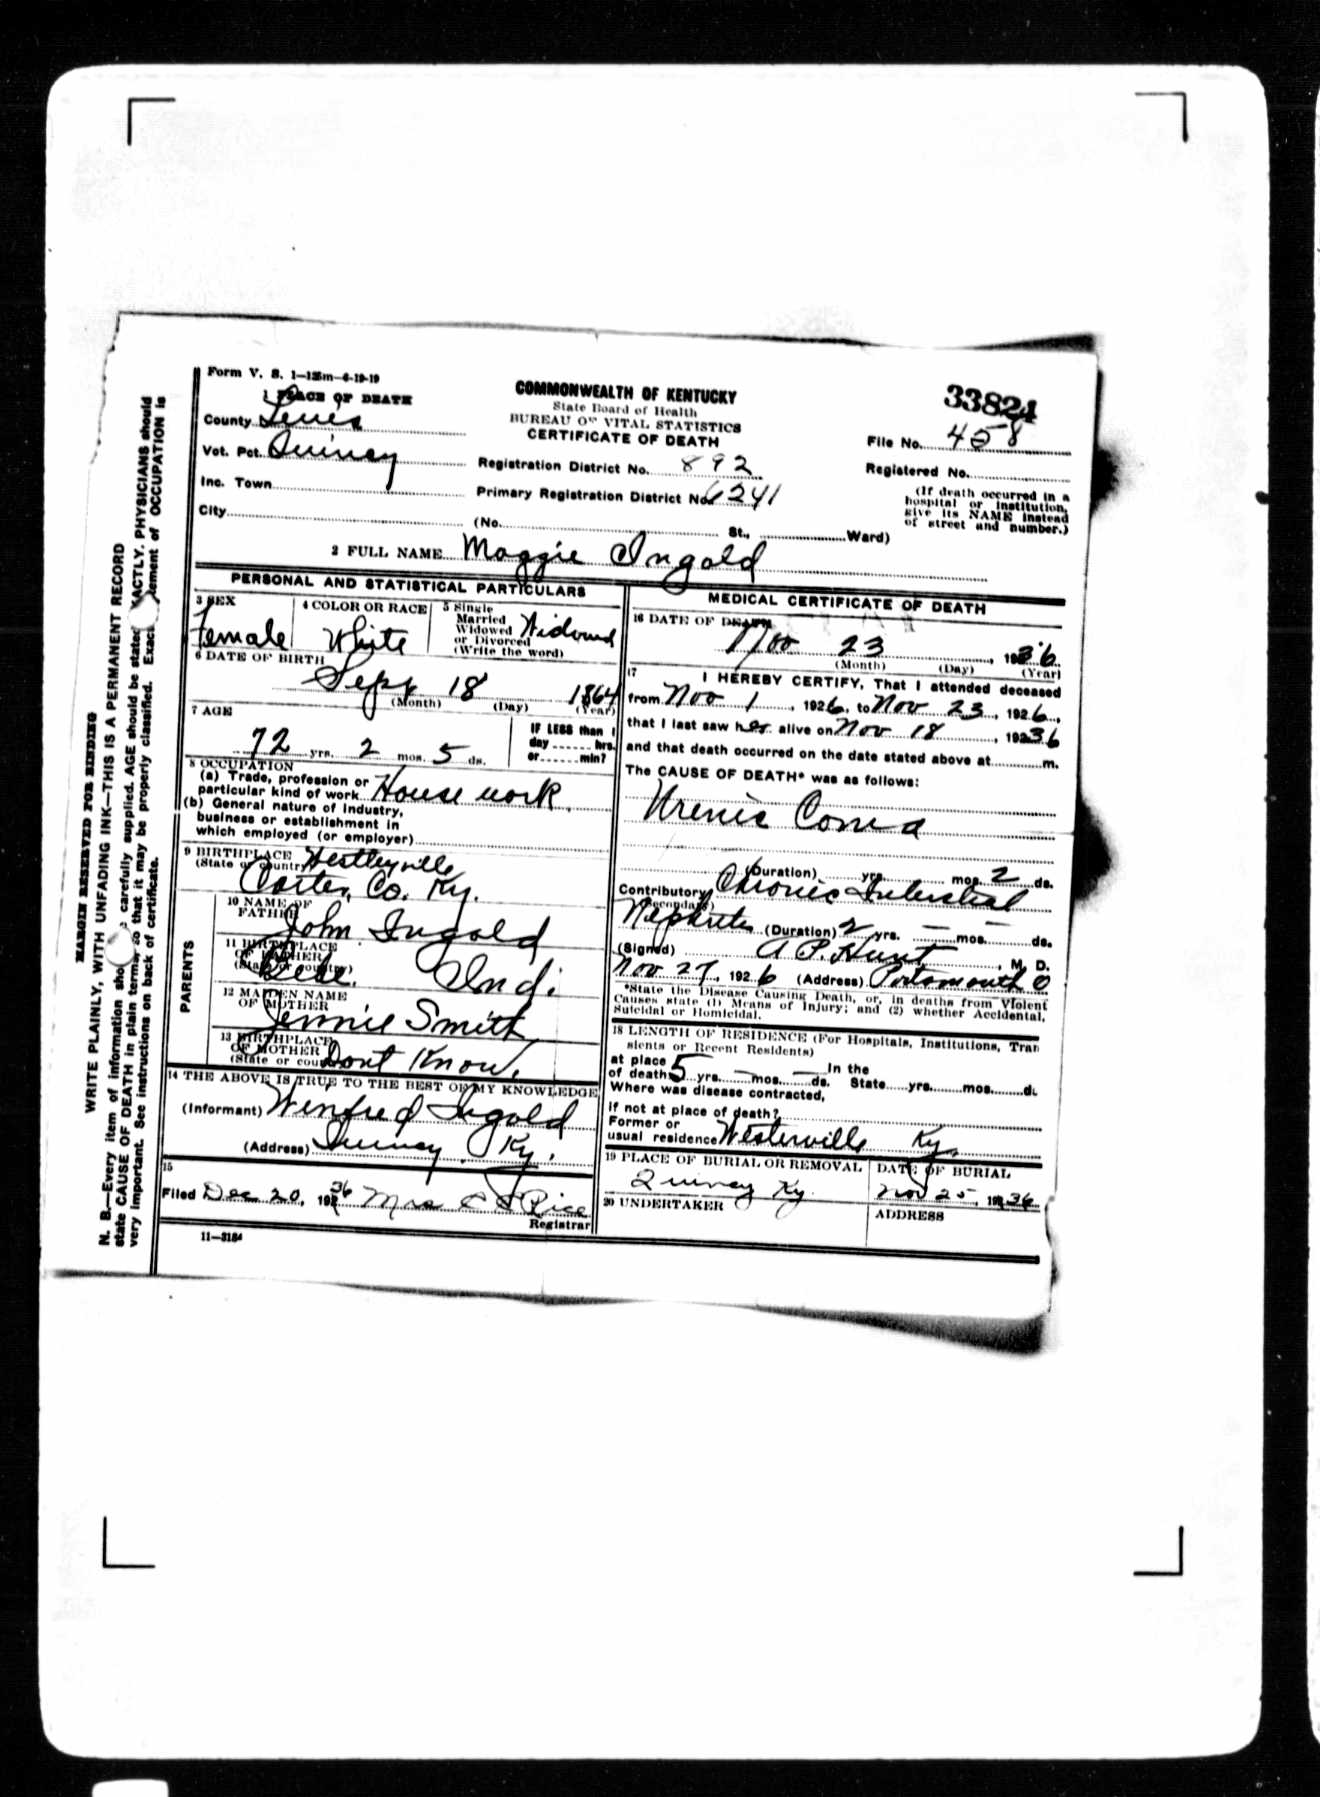 Form V. S. 1—125m—6-19-19
1 PLACE OF DEATH
County Lewis
Vot. Pct. Quincy
Inc. Town
City
COMMONWEALTH OF KENTUCKY
State Board of Health
BUREAU OF VITAL STATISTICS
CERTIFICATE OF DEATH
Registration District No. 892
Primary Registration District No. 6241
(No. St., Ward)
33824
File No. 458
Registered No.
(If death occurred in a
hospital or institution,
give its NAME instead
of street and number.)
2 FULL NAME Maggie Ingold
PERSONAL AND STATISTICAL PARTICULARS
3 SEX
Female
4 COLOR OR RACE
White
5 Single
Married
Widowed
or Divorced
(Write the word)
Widowed
6 DATE OF BIRTH
Sept 18 1864
(Month) (Day) (Year)
7 AGE
72 yrs. 2 mos. 5 ds.
IF LESS than 1
day hrs.
or min?
8 OCCUPATION
(a) Trade, profession or
particular kind of work House work
(b) General nature of industry,
business or establishment in
which employed (or employer)
9 BIRTHPLACE
(State or country)
Carter, Co. Ky.
PARENTS
10 NAME OF
FATHER
John Ingold
11 BIRTHPLACE
OF FATHER
(State or country)
Ind.
12 MAIDEN NAME
OF MOTHER
Jennie Smith
13 BIRTHPLACE
OF MOTHER
(State or country) Dont Know.
14 THE ABOVE IS TRUE TO THE BEST OF MY KNOWLEDGE
(Informant) Winfred Ingold
(Address) Quincy Ky.
15
Filed Dec 20, 1936 Mrs Rice
Registrar
11—3184
MEDICAL CERTIFICATE OF DEATH
16 DATE OF DEATH
Nov 23, 1936
(Month) (Day) (Year)
17
I HEREBY CERTIFY, That I attended deceased
from Nov 1, 1926, to Nov 23, 1926,
that I last saw her alive on Nov 18, 1936
and that death occurred on the date stated above at m.
The CAUSE OF DEATH* was as follows:
Uremic Coma
(Duration) yrs. mos. 2 ds.
Contributory Chronic Interstitial
(Secondary)
Nephritis (Duration) 2 yrs. — mos. — ds.
(Signed) A. P. Hunt, M. D.
Nov 27, 1926 (Address) Portsmouth O
*State the Disease Causing Death, or, in deaths from Violent
Causes state (1) Means of Injury; and (2) whether Accidental,
Suicidal or Homicidal.
18 LENGTH OF RESIDENCE (For Hospitals, Institutions, Tran
sients or Recent Residents)
at place In the
of death 5 yrs. — mos. — ds. State yrs. mos. d.
Where was disease contracted,
if not at place of death?
Former or
usual residence Westerville Ky.
19 PLACE OF BURIAL OR REMOVAL
Quincy Ky.
DATE OF BURIAL
Nov 25, 1936
20 UNDERTAKER
ADDRESS
MARGIN RESERVED FOR BINDING
WRITE PLAINLY, WITH UNFADING INK—THIS IS A PERMANENT RECORD
N. B.—Every item of information sho carefully supplied. AGE should be stated ACTLY. PHYSICIANS should
state CAUSE OF DEATH in plain terms, so that it may be properly classified. Exact ement of OCCUPATION is
very important. See instructions on back of certificate.